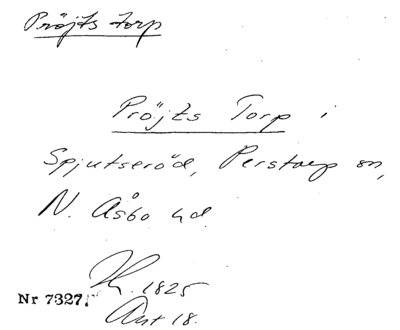 Pröjts torp
Pröjts Torp i
Spjutseröd, Perstorp sn,
N. Åsbo hd.
1825
Nr 7327.
Ant 18.